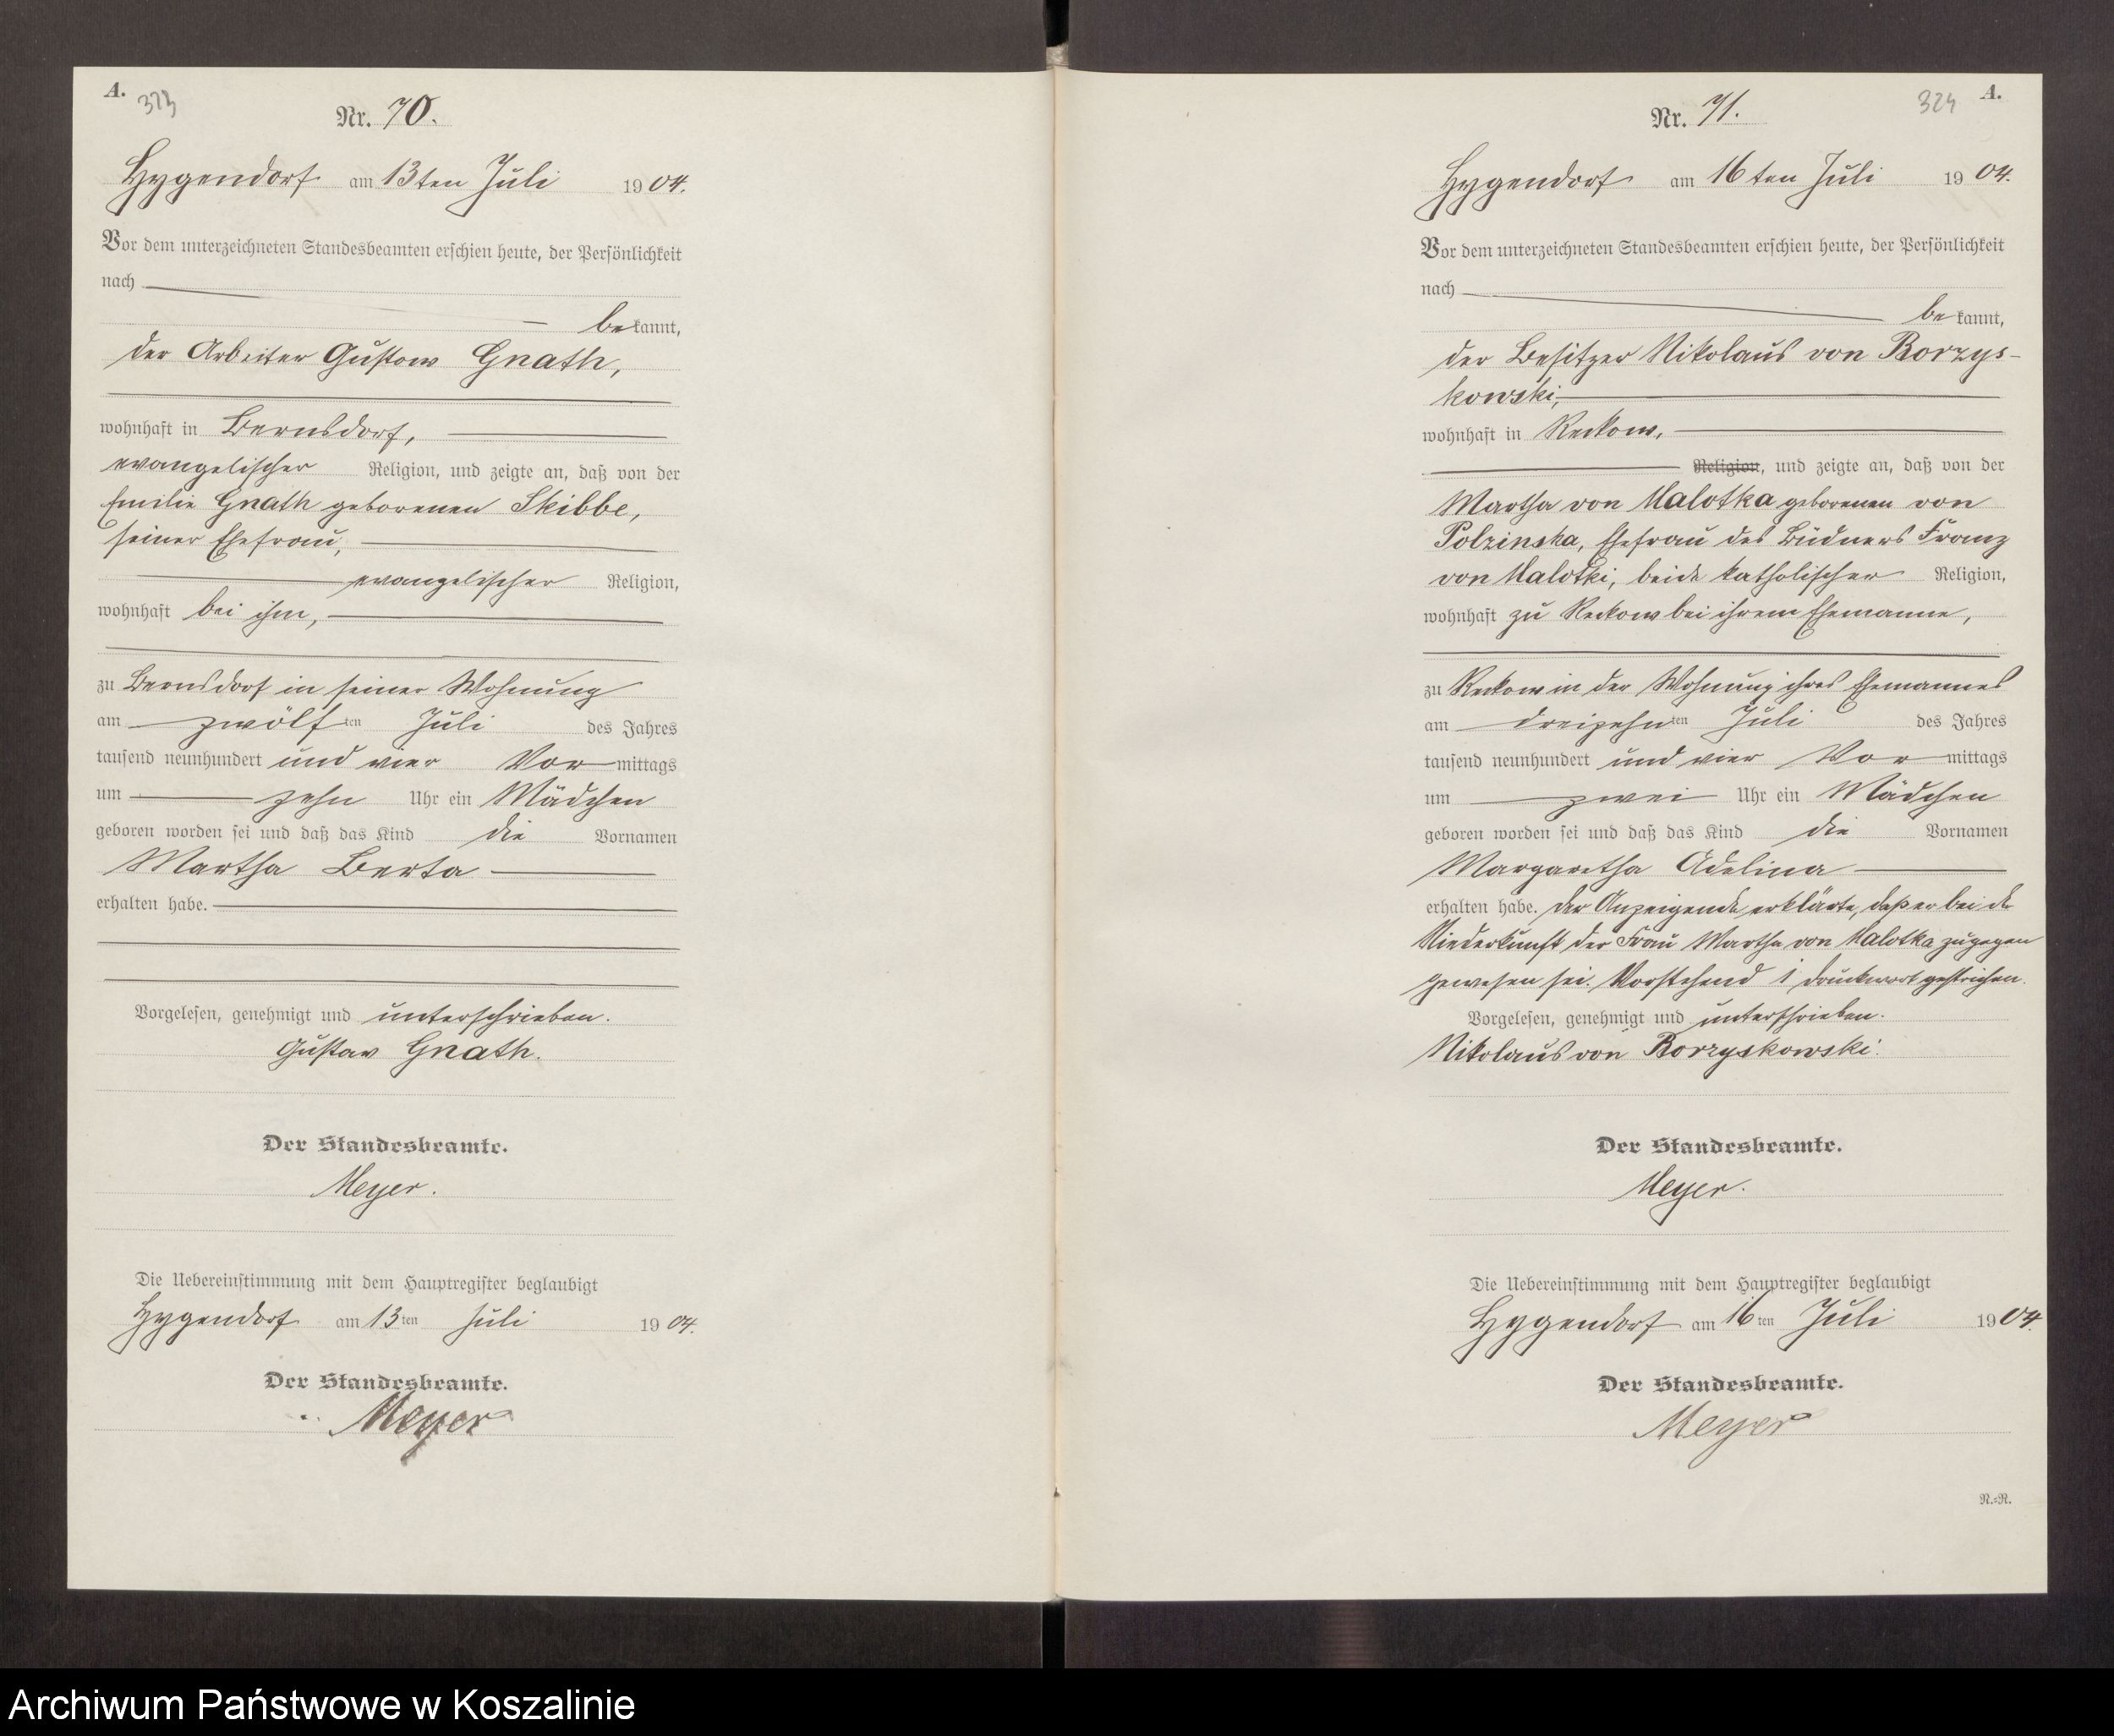 A.
323
Nr. 70.
Hygendorf am 13ten Juli 1904.
Vor dem unterzeichneten Standesbeamten erschien heute, der Persönlichkeit
nach
bekannt,
der Arbeiter Gustav Gnath,
wohnhaft in Bernsdorf,
evangelischer Religion, und zeigte an, daß von der
Emilie Gnath geborenen Skibbe,
seiner Ehefrau,
evangelischer Religion,
wohnhaft bei ihm,
zu Bernsdorf in seiner Wohnung
am zwölften Juli des Jahres
tausend neunhundert und vier Vormittags
um zehn Uhr ein Mädchen
geboren worden sei und daß das Kind die Vornamen
Martha Berta
erhalten habe.
Vorgelesen, genehmigt und unterschrieben.
Gustav Gnath.
Der Standesbeamte.
Meyer.
Die Uebereinstimmung mit dem Hauptregister beglaubigt
Hygendorf am 13ten Juli 1904.
Der Standesbeamte.
Meyer
324
A.
Nr. 71.
Hygendorf am 16ten Juli 1904.
Vor dem unterzeichneten Standesbeamten erschien heute, der Persönlichkeit
nach
bekannt,
der Besitzer Nikolaus von Borzys-
kowski,
wohnhaft in Reckow,
Religion, und zeigte an, daß von der
Martha von Malotka geborenen von
Polzinska, Ehefrau des Büdners Franz
von Malotki, beide katholischer Religion,
wohnhaft zu Reckow bei ihrem Ehemanne,
zu Reckow in der Wohnung ihres Ehemannes
am dreizehnten Juli des Jahres
tausend neunhundert und vier Vormittags
um zwei Uhr ein Mädchen
geboren worden sei und daß das Kind die Vornamen
Margaretha Adelina
erhalten habe. Der Anzeigende erklärte, daß er bei der
Niederkunft der Frau Martha von Malotka zugegen
gewesen sei. Vorstehend 1 Druckwort gestrichen.
Vorgelesen, genehmigt und unterschrieben.
Nikolaus von Borzyskowski.
Der Standesbeamte.
Meyer.
Die Uebereinstimmung mit dem Hauptregister beglaubigt
Hygendorf am 16ten Juli 1904.
Der Standesbeamte.
Meyer
R.=R.
Archiwum Państwowe w Koszalinie